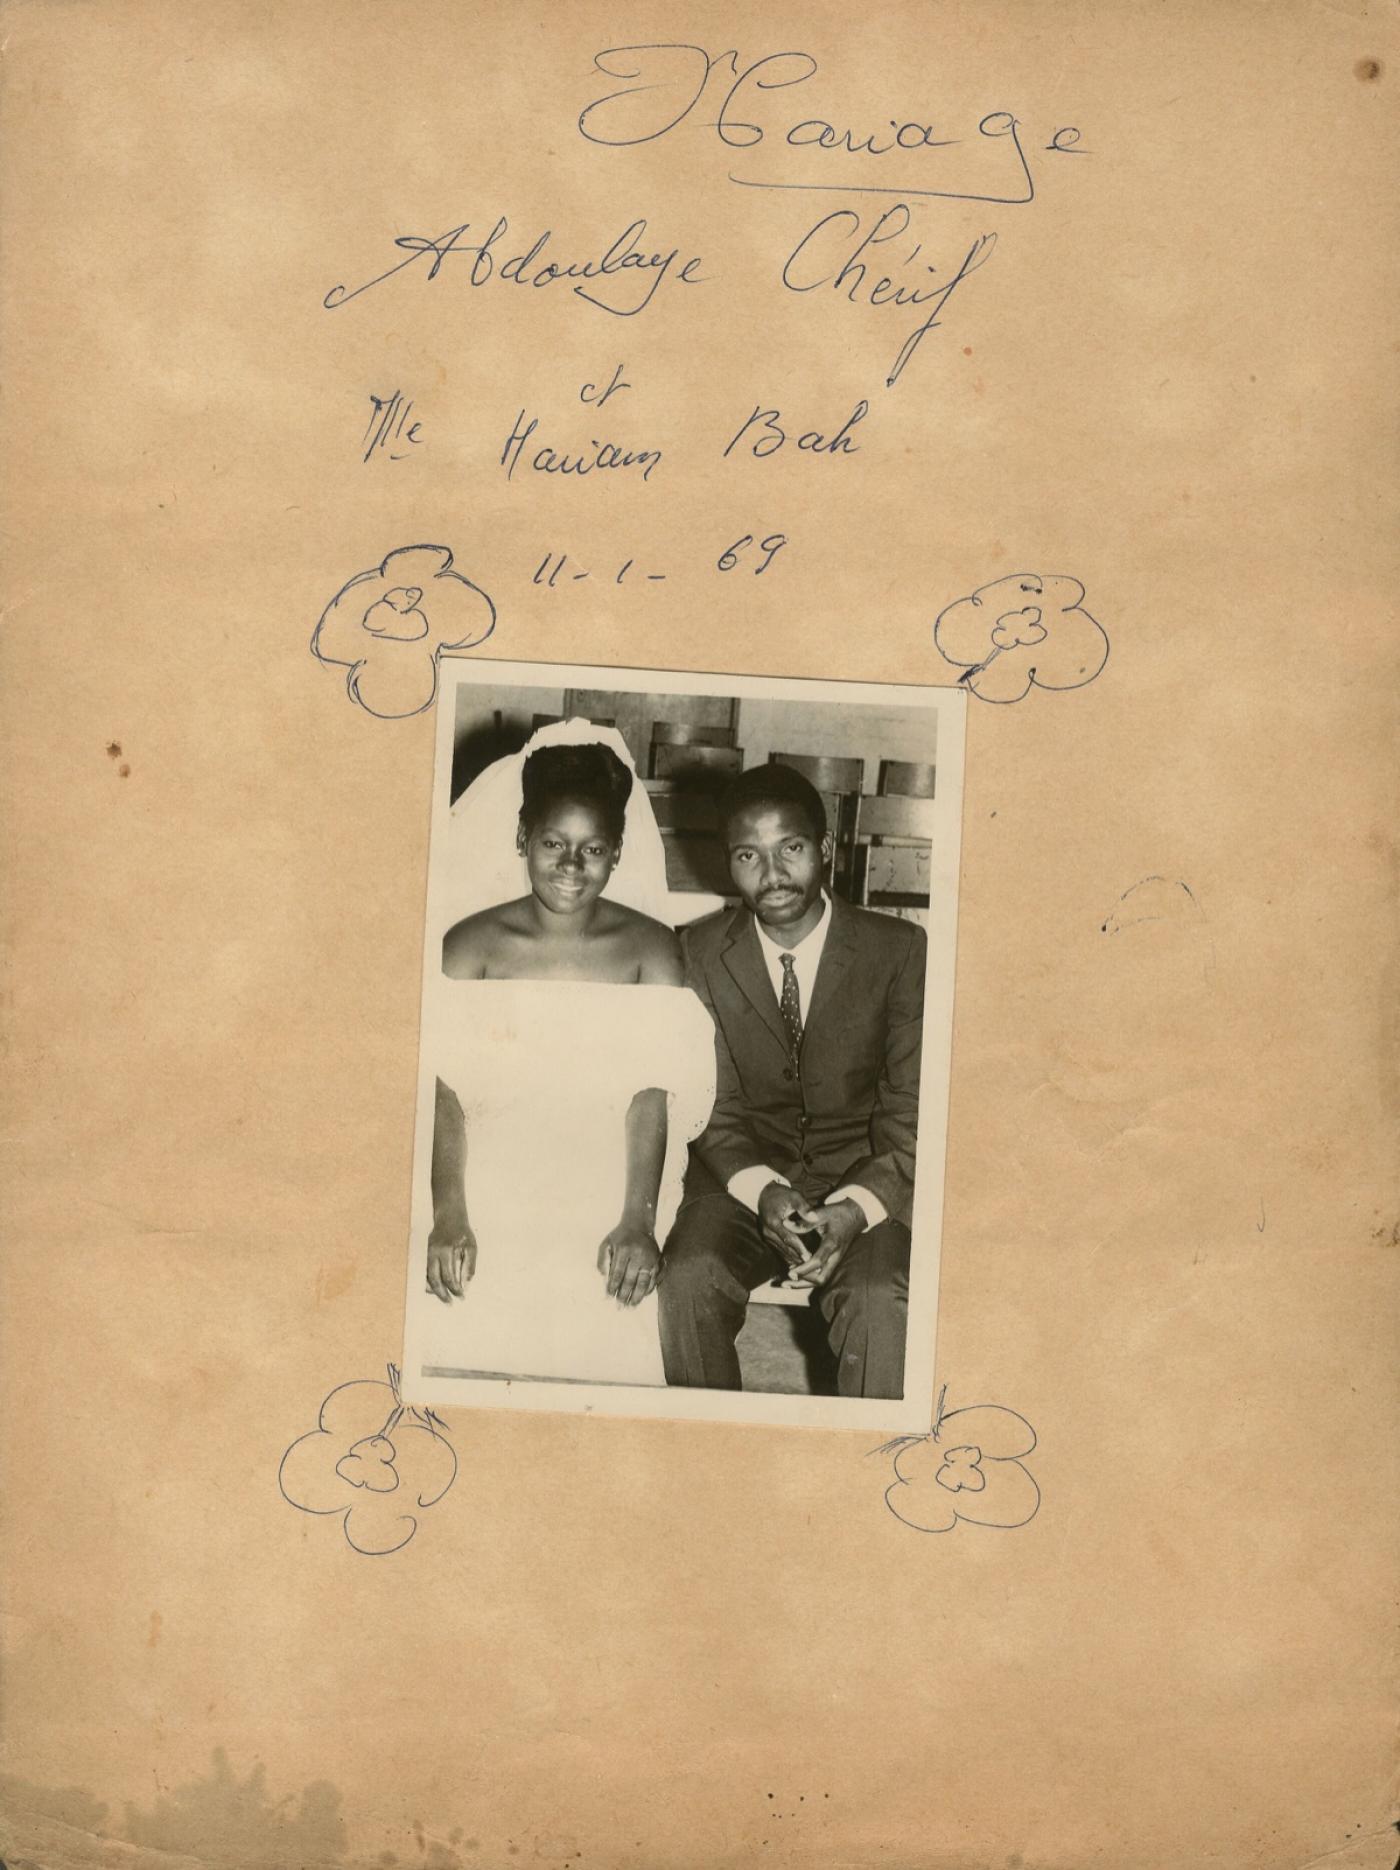 Mariage
Abdoulaye Chérif
et
Mlle Mariam Bah
11-1-69